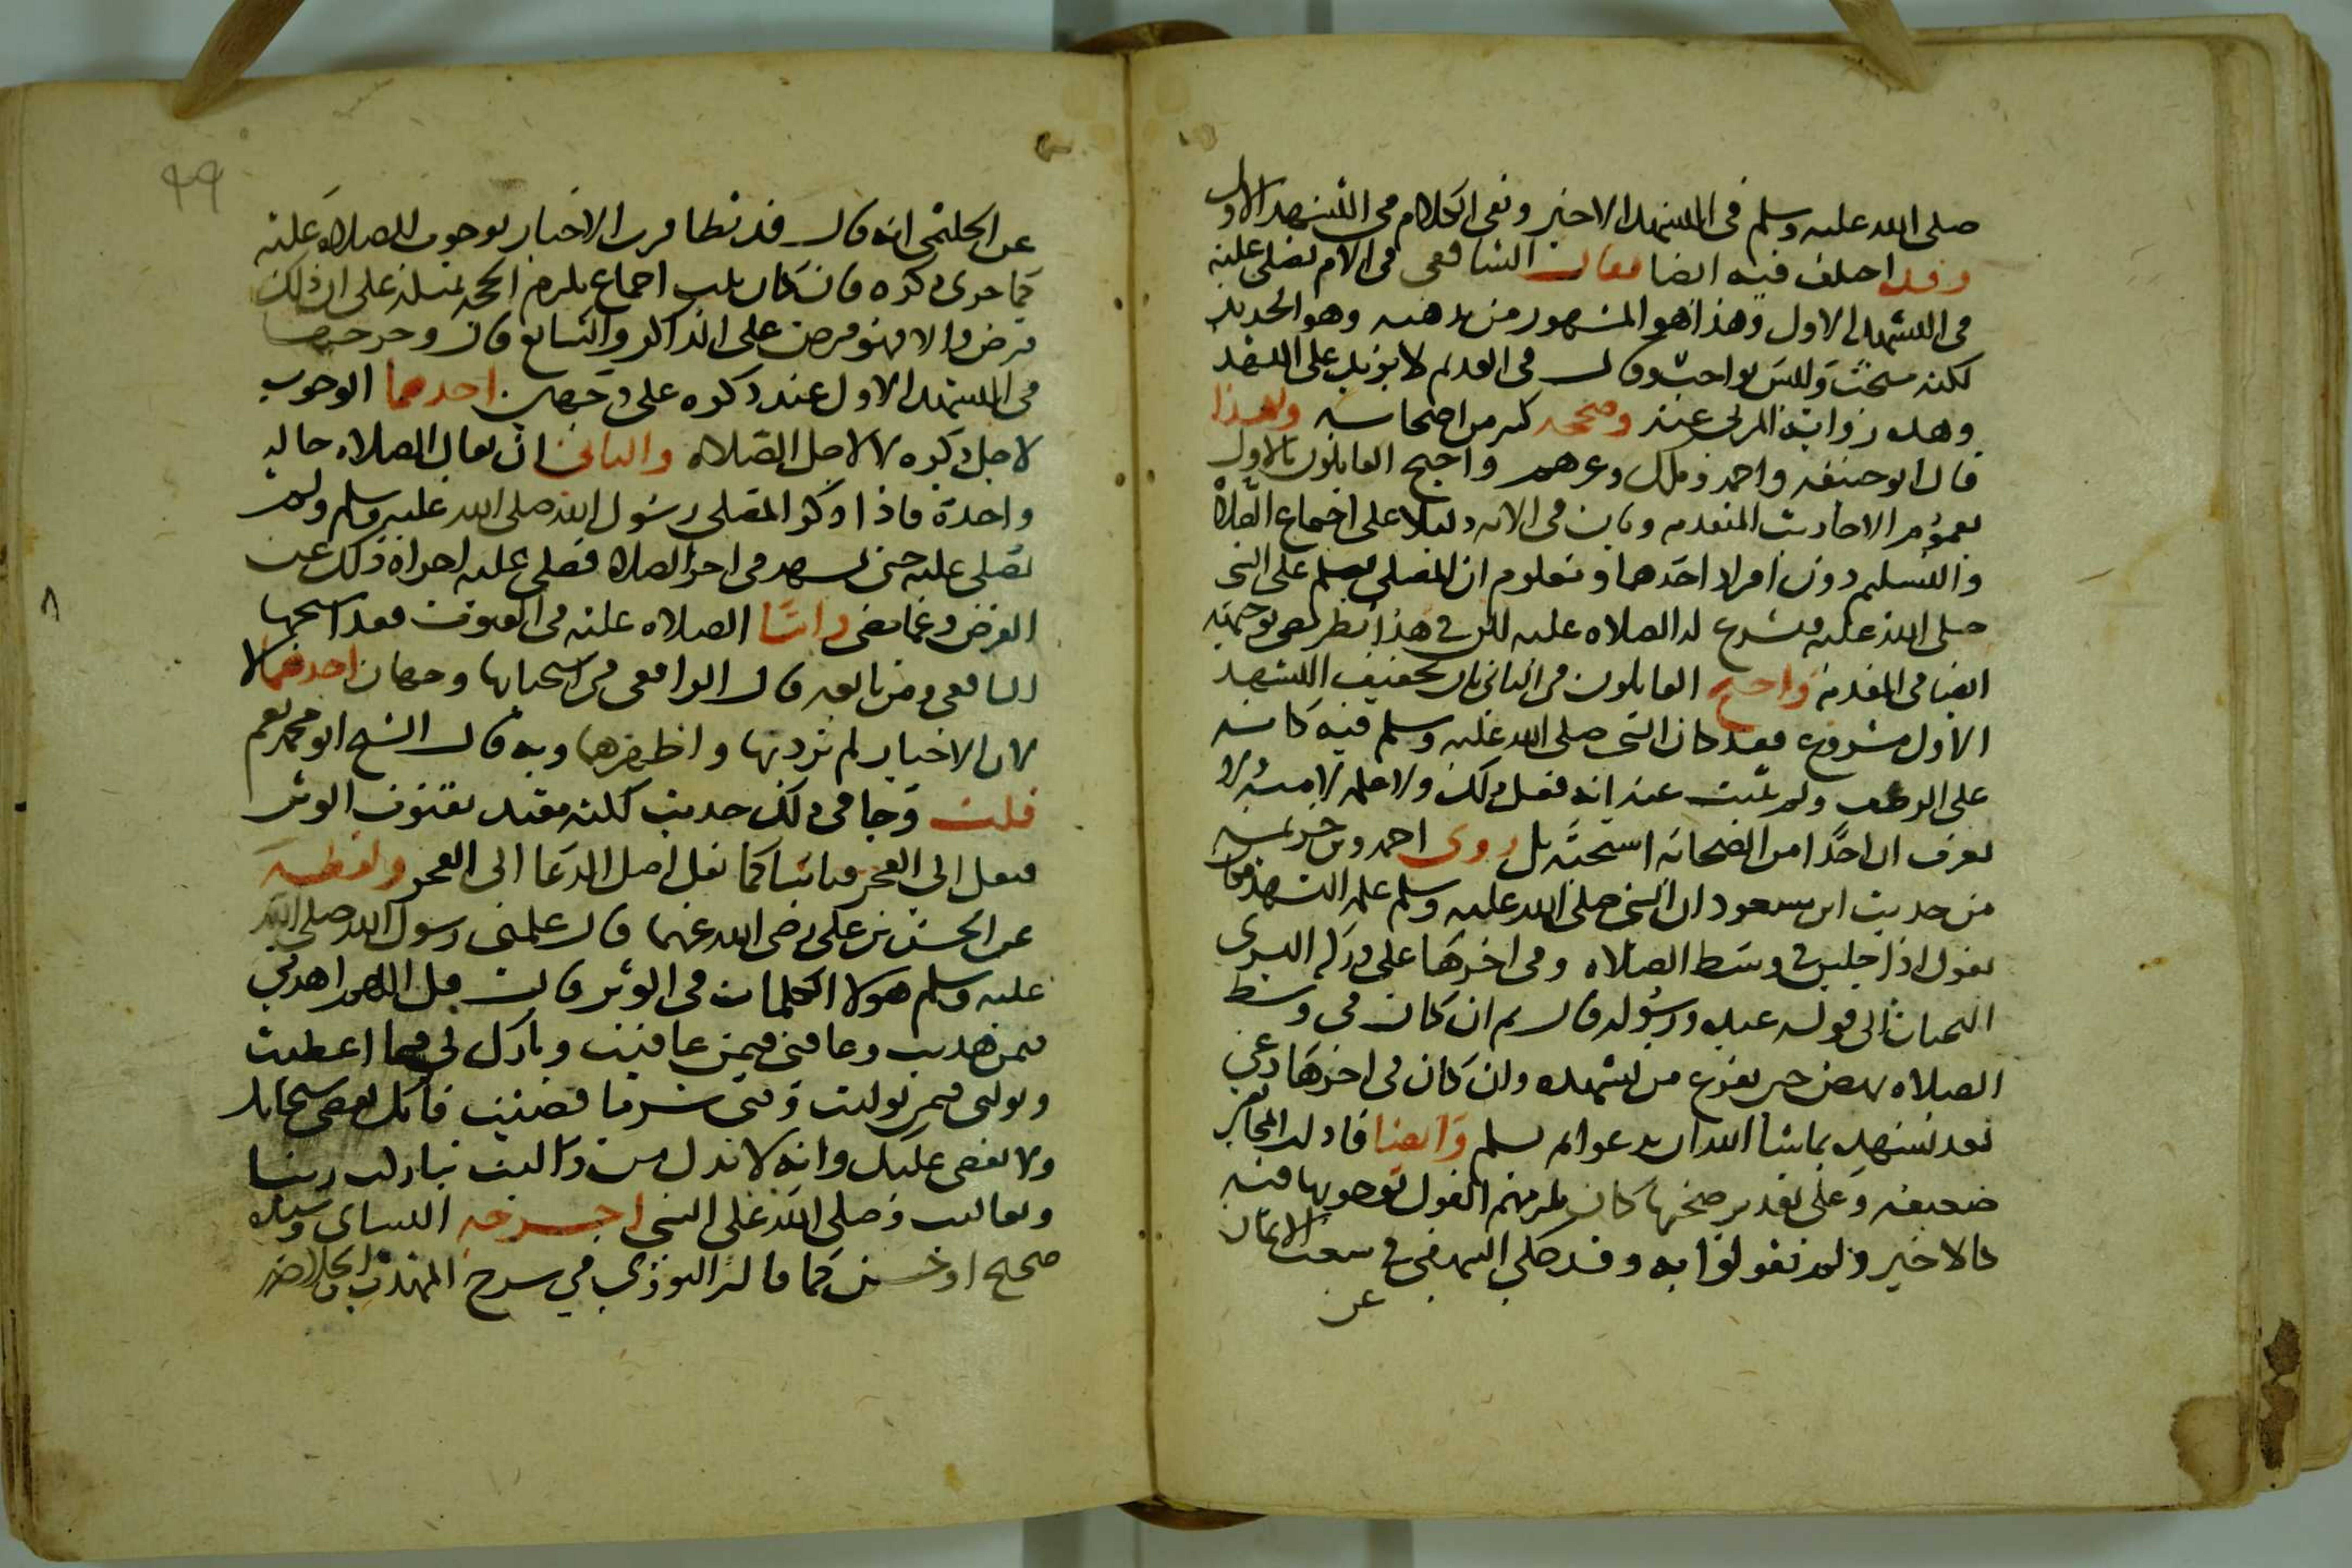 صلى الله عليه وسلم في التشهد الاخير وبقي الكلام في التشهد الاول
وقد اختلف فيه ايضا فقال الشافعي في الام يصلى عليه
في التشهد الاول وهذا هو المشهور من مذهبه وهو الجديد
لكنه مستحب وليس بواجب وقال في القديم لا يزيد على التشهد
وهذه رواية المزني عنه وصححه كثير من اصحابه وبهذا
قال ابو حنيفه واحمد ومالك وغيرهم واحتج القائلون بالاول
بعموم الاحاديث المتقدمه وبان في الايه دليلا على اجتماع الصلاة
والتسليم دون افراد احدهما ومعلوم ان المصلي يسلم على النبي
صلى الله عليه فيشرع له الصلاه عليه لكن في هذا نظر
ايضا في المقدمة واحتج القائلون في الثاني بان تخفيف التشهد
الاول مشروع فقد كان النبي صلى الله عليه وسلم فيه كانه
على الرضف ولم يثبت عنه انه فعل ذلك ولا علمه لامته ولا
يعرف ان احدا من الصحابه استحبه بل روى احمد وبن خزيمه
من حديث ابن مسعود ان النبي صلى الله عليه وسلم علمه التشهد فكان
يقول اذا جلس في وسط الصلاه وفي اخرها على وركه اليسرى
التحيات الى قوله عبده ورسوله قال ثم ان كان في وسط
الصلاه نهض حين يفرغ من تشهده وان كان في اخرها دعى
بعد تشهده بما شا الله ان يدعوا ثم يسلم وايضا فادلة
ضعيفه وعلى تقدير صحتها كان يلزمهم القول بوجوبها فيه
كالاخير ولم يقولوا به وقد حكى البيهقي في شعب الايمان
عن
٩٩
عن الحليمي انه قال قد تظاهرت الاخبار بوجوب الصلاه عليه
كما جرى ذكره فان كان يثبت اجماع يلزم الحجه بمثله على ان ذلك
فرض والا فهو فرض على الذاكر والسامع قال وخرج
في التشهد الاول عند ذكره على وجهين احدهما الوجوب
لاجل ذكره لا لاجل الصلاه والثاني ان يقال الصلاه حاله
واحدة فاذا ذكر المصلي رسول الله صلى الله عليه وسلم ولم
يصلى عليه حتى تشهد في اخر الصلاه فصلى عليه اجزاه ذلك عن
الفرض وعما مضى واما الصلاه عليه في القنوت فقد استحبها
الشافعي ومن تابعه قال الرافعي في استحبابها وجهان احدهما لا
لان الاخبار لم ترد بها واظهرهما وبه قال الشيخ ابو محمد نعم
قلت وجا في ذلك حديث لكنه مقيد بقنوت الوتر
فنقل الى الفجر قياسا كما نقل اصل الدعا الى الفجر ولفظه
عن الحسن بن علي رضي الله عنهما قال علمني رسول الله صلى الله
عليه وسلم هولا الكلمات في الوتر قال قل اللهم اهدني
فيمن هديت وعافني فيمن عافيت وبارك لي فيما اعطيت
وتولني فيمن توليت وقني شر ما قضيت فانك تقضي
ولا يقضى عليك وانه لا يذل من واليت تباركت ربنا
وتعاليت وصلى الله على النبي اخرجه النساي وسنده
صحيح او حسن كما قاله النووي في شرح المهذب